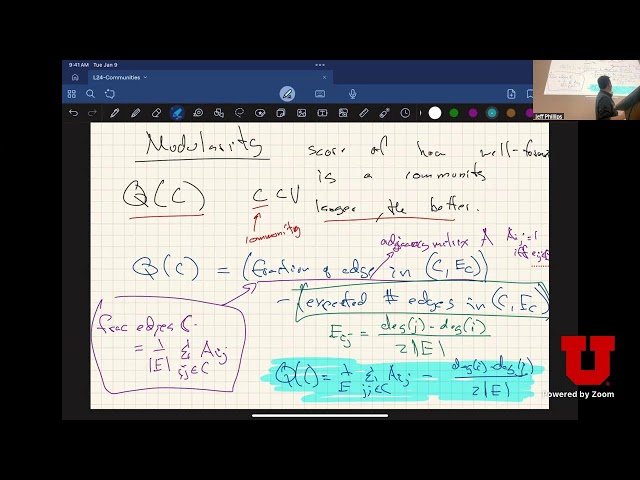 9:41 AM Tue Jan 9
L24-Communities
Jeff Phillips
Modularity
score of how well-form
is a community
larger, the better.
Q(C)
C ⊂ V
community
adjacency matrix A
A_ij = 1
iff
Q(C) = (fraction of edge in (C, E_C))
- (expected # edges in (C, E_C)
E_ij = deg(j) · deg(i) / 2|E|
frac edges C
= 1/|E| Σ_{i,j∈C} A_ij
Q(C) = 1/E Σ_{ij∈C} A_ij - deg(i) · deg(j) / 2|E|
U
Powered by Zoom